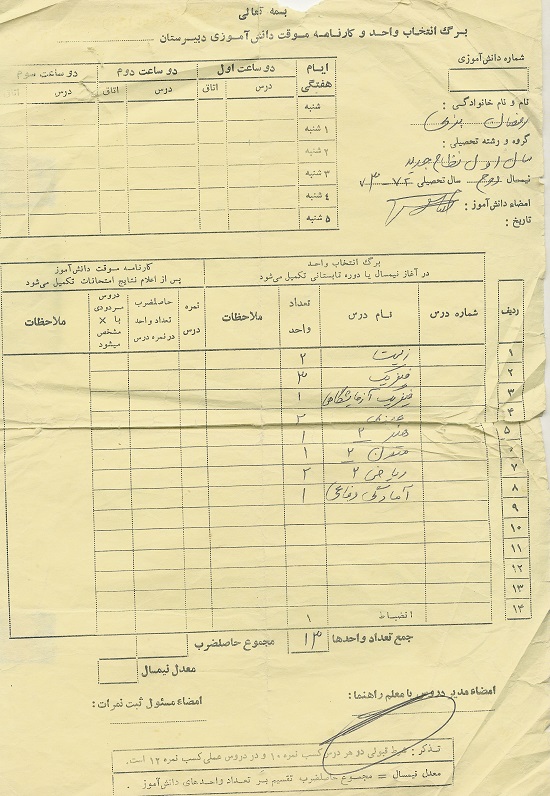 بسمه تعالی
برگ انتخاب واحد و کارنامه موقت دانش‌آموزی دبیرستان
شماره دانش‌آموزی
نام و نام خانوادگی :
رمضان
گروه و رشته تحصیلی :
سال اول نظام جدید
نیمسال دوم سال تحصیلی ۷۲-۷۳
امضاء دانش‌آموز :
تاریخ :
ایام هفتگی دو ساعت اول دو ساعت دوم دو ساعت سوم
درس اتاق درس اتاق درس اتاق
شنبه
۱ شنبه
۲ شنبه
۳ شنبه
۴ شنبه
۵ شنبه
برگ انتخاب واحد
در آغاز نیمسال یا دوره تابستانی تکمیل می‌شود
کارنامه موقت دانش‌آموز
پس از اعلام نتایج امتحانات تکمیل می‌شود
ردیف شماره درس نام درس تعداد واحد ملاحظات نمره درس حاصلضرب تعداد واحد در نمره درس دروس مردودی با × مشخص میشود ملاحظات
۱ زیست ۲
۲ فیزیک ۳
۳ فیزیک آزمایشگاهی ۱
۴
۵ هنر ۲ ۱
۶ ۲ ۱
۷ ریاضی ۲ ۲
۸ آمادگی دفاعی ۱
۹
۱۰
۱۱
۱۲
۱۳
۱۴ انضباط ۱
جمع تعداد واحدها ۱۳ مجموع حاصلضرب
معدل نیمسال
امضاء مدیر دروس یا معلم راهنما :
امضاء مسئول ثبت نمرات :
تذکر : شرط قبولی در هر درس کسب نمره ۱۰ و در دروس عملی کسب نمره ۱۲ است.
معدل نیمسال = مجموع حاصلضرب تقسیم بر تعداد واحدهای دانش‌آموز .